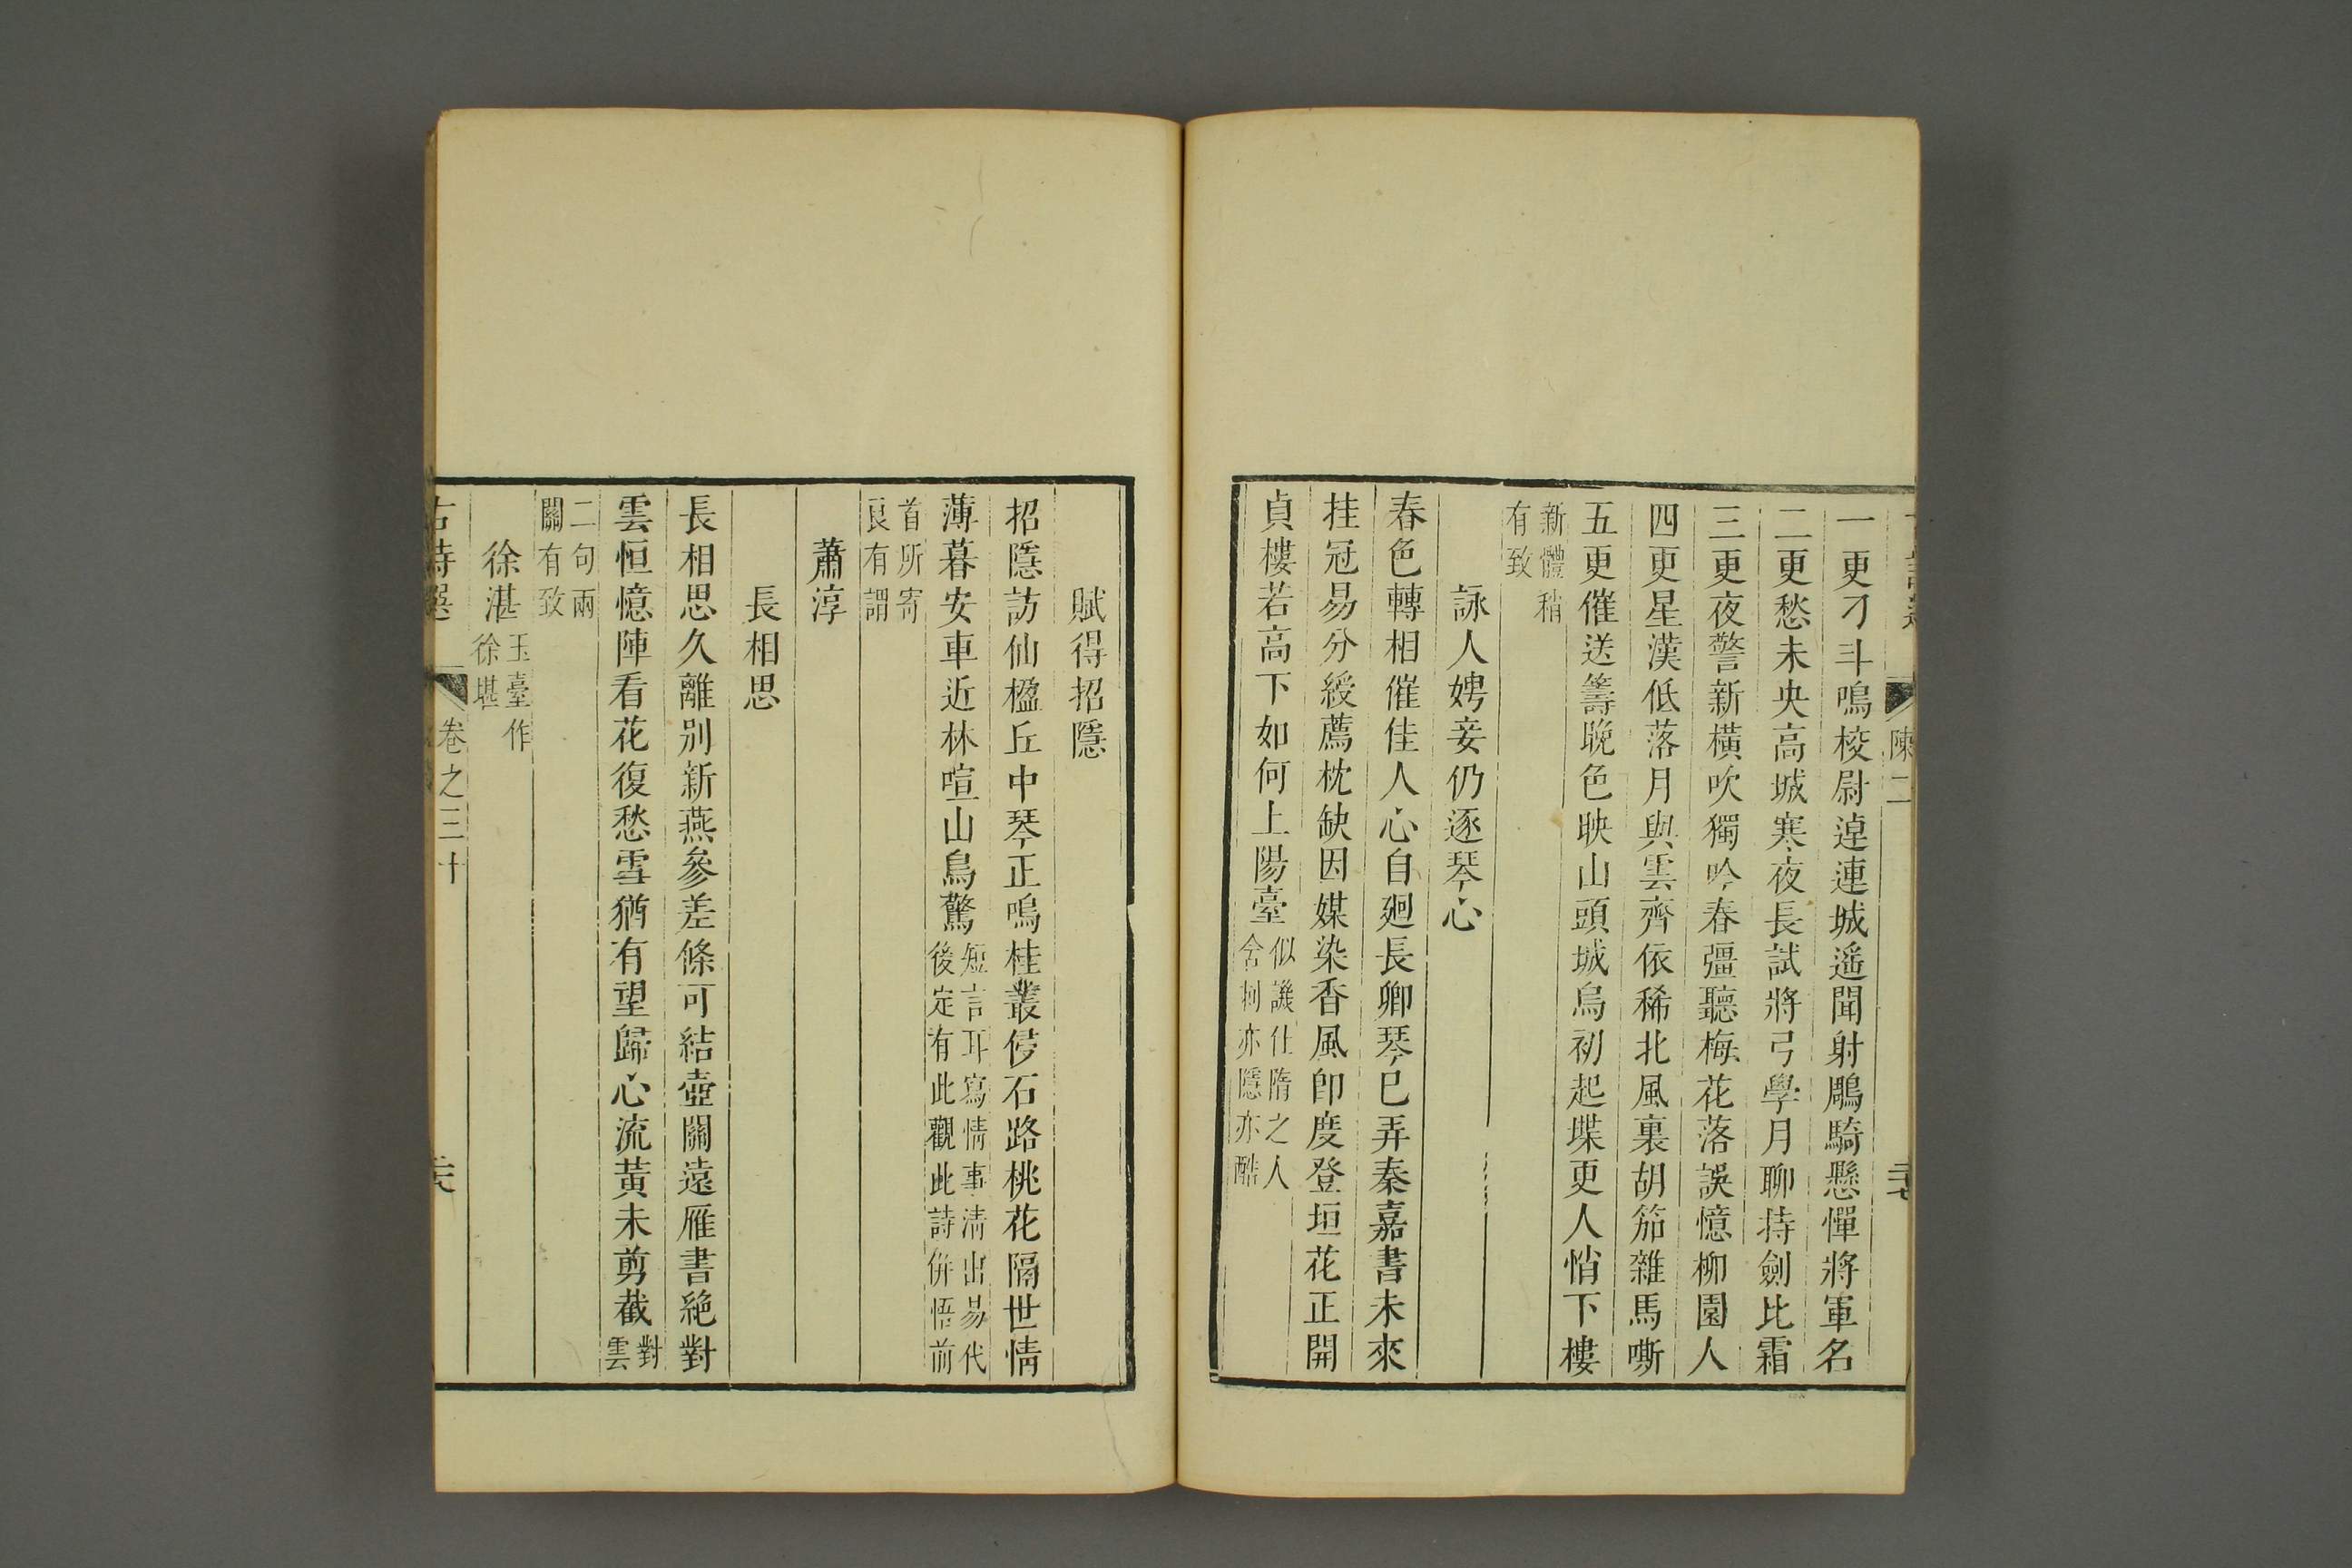 陳二
一更刁斗鳴校尉逴連城遙聞射鵰騎懸憚將軍名
二更愁未央高城寒夜長試將弓學月聊持劍比霜
三更夜警新橫吹獨吟春彊聽梅花落誤憶柳園人
四更星漢低落月與雲齊依稀北風裏胡笳雜馬嘶
五更催送籌曉色映山頭城烏初起堞更人悄下樓
新體稍
有致
詠人娉妾仍逐琴心
春色轉相催佳人心自迴長卿琴已弄秦嘉書未來
挂冠易分綬薦枕缺因媒染香風卽度登垣花正開
貞樓若高下如何上陽臺
似譏仕隋之人
亦隱亦酷
賦得招隱
招隱訪仙楹丘中琴正鳴桂叢侵石路桃花隔世情
薄暮安車近林喧山鳥驚
短言耳寫情事清出易代
後定有此觀此詩併悟前
首所寄
良有謂
蕭淳
長相思
長相思久離別新燕參差條可結壺關遠雁書絕對
雲恒憶陣看花復愁雪猶有望歸心流黃未剪截
對
雲
二句兩
關有致
徐湛
玉臺作
徐堪
古詩選
卷之三十